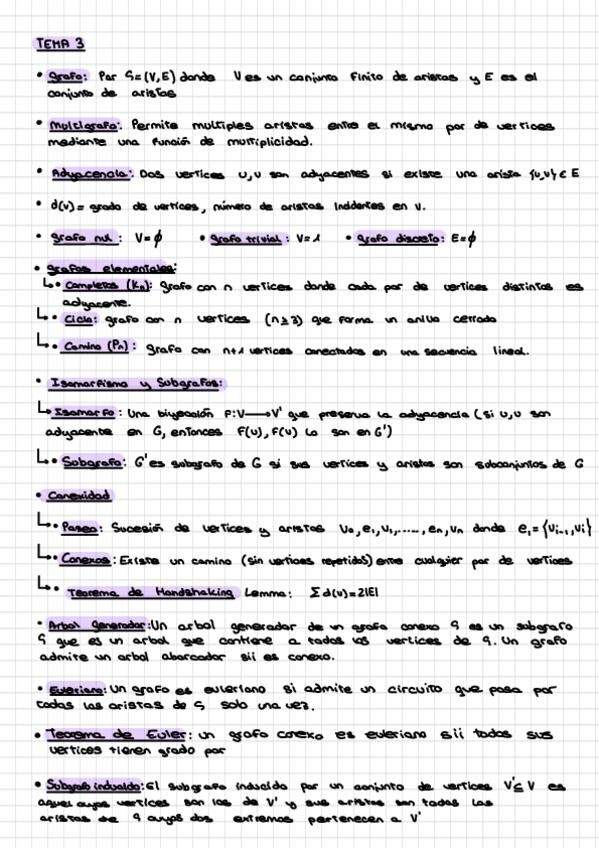 TEMA 3
• Grafo: Par G=(V,E) donde V es un conjunto finito de aristas y E es el
conjunto de aristas
• Multigrafo: Permite multiples aristas entre el mismo par de vertices
mediante una función de multiplicidad.
• Adyacencia: Dos vertices u,v son adyacentes si existe una arista {u,v} ∈ E
• d(v)= grado de vertices, número de aristas incidentes en v.
• Grafo nul: V=∅ • Grafo trivial: V=1 • Grafo discreto: E=∅
• Grafos elementales:
↳• Completos (Kn): Grafo con n vertices donde cada par de vertices distintos es
adyacente.
↳• Ciclo: grafo con n vertices (n≥3) que forma un anillo cerrado
↳• Camino (Pn): Grafo con n+1 vertices conectados en una secuencia lineal.
• Isomorfismo y Subgrafos:
↳Isomorfo: Una biyección F:V⟶V' que preserva la adyacencia (si u,v son
adyacente en G, entonces F(u),F(v) lo son en G')
↳• Subgrafo: G' es subgrafo de G si sus vertices y aristas son subconjuntos de G
• Conexidad
↳• Paseo: Sucesión de vertices y aristas V₀,e₁,V₁,.....,eₙ,Vₙ donde eᵢ={Vᵢ₋₁,Vᵢ}
↳• Conexos: Existe un camino (sin vertices repetidos) entre cualquier par de vertices
↳• Teorema de Handshaking Lemma: Σd(v)=2|E|
• Arbol generador: Un arbol generador de un grafo conexo G es un subgrafo
G que es un arbol que contiene a todos los vertices de G. Un grafo
admite un arbol abarcador sii es conexo.
• Euleriano: Un grafo es euleriano si admite un circuito que pasa por
todas las aristas de G solo una vez.
• Teorema de Euler: un grafo conexo es euleriano sii todos sus
vertices tienen grado par
• Subgrafo inducido: El subgrafo inducido por un conjunto de vertices V'⊆V es
aquel cuyos vertices son los de V' y sus aristas son todas las
aristas de G cuyos dos extremos pertenecen a V'